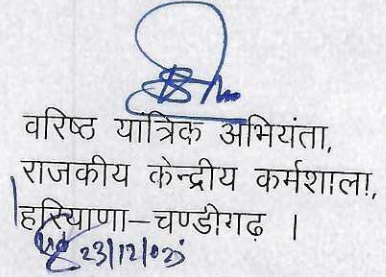 वरिष्ठ यांत्रिक अभियंता,
राजकीय केन्द्रीय कर्मशाला,
हरियाणा–चण्डीगढ़ ।
23/12/05